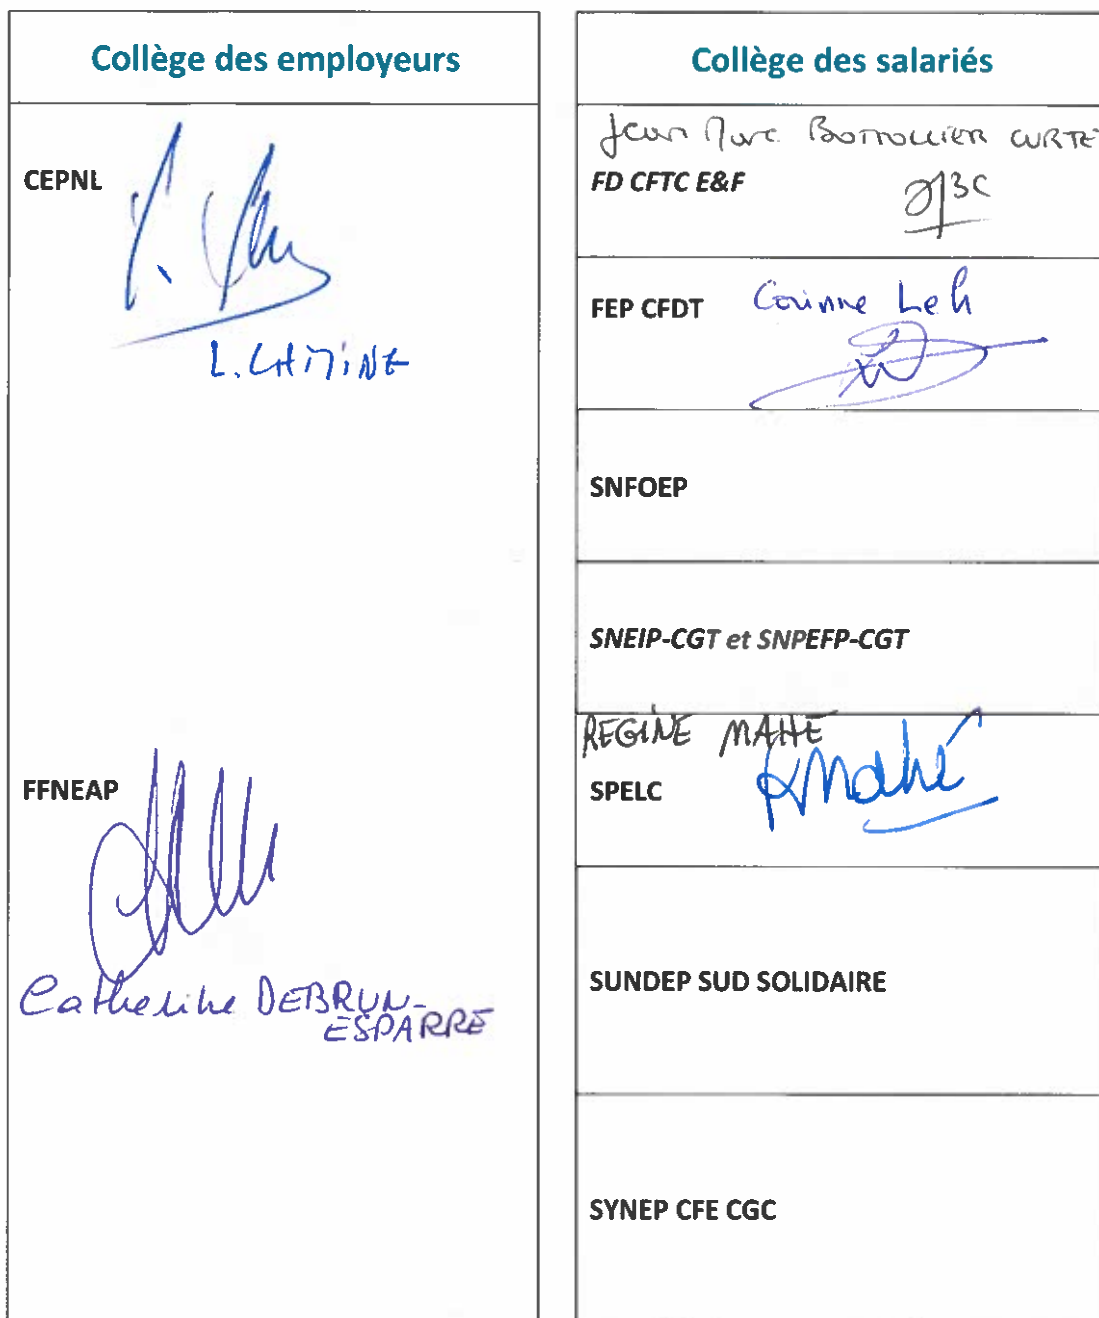 Collège des employeurs
CEPNL
L. LAMINE
FFNEAP
Catherine DEBRUN-
ESPARRE
Collège des salariés
Jean Marc BOTTOLLIER CURTET
FD CFTC E&F
JMBC
FEP CFDT Corinne Leh
SNFOEP
SNEIP-CGT et SNPEFP-CGT
REGINE MAHE
SPELC RMahé
SUNDEP SUD SOLIDAIRE
SYNEP CFE CGC